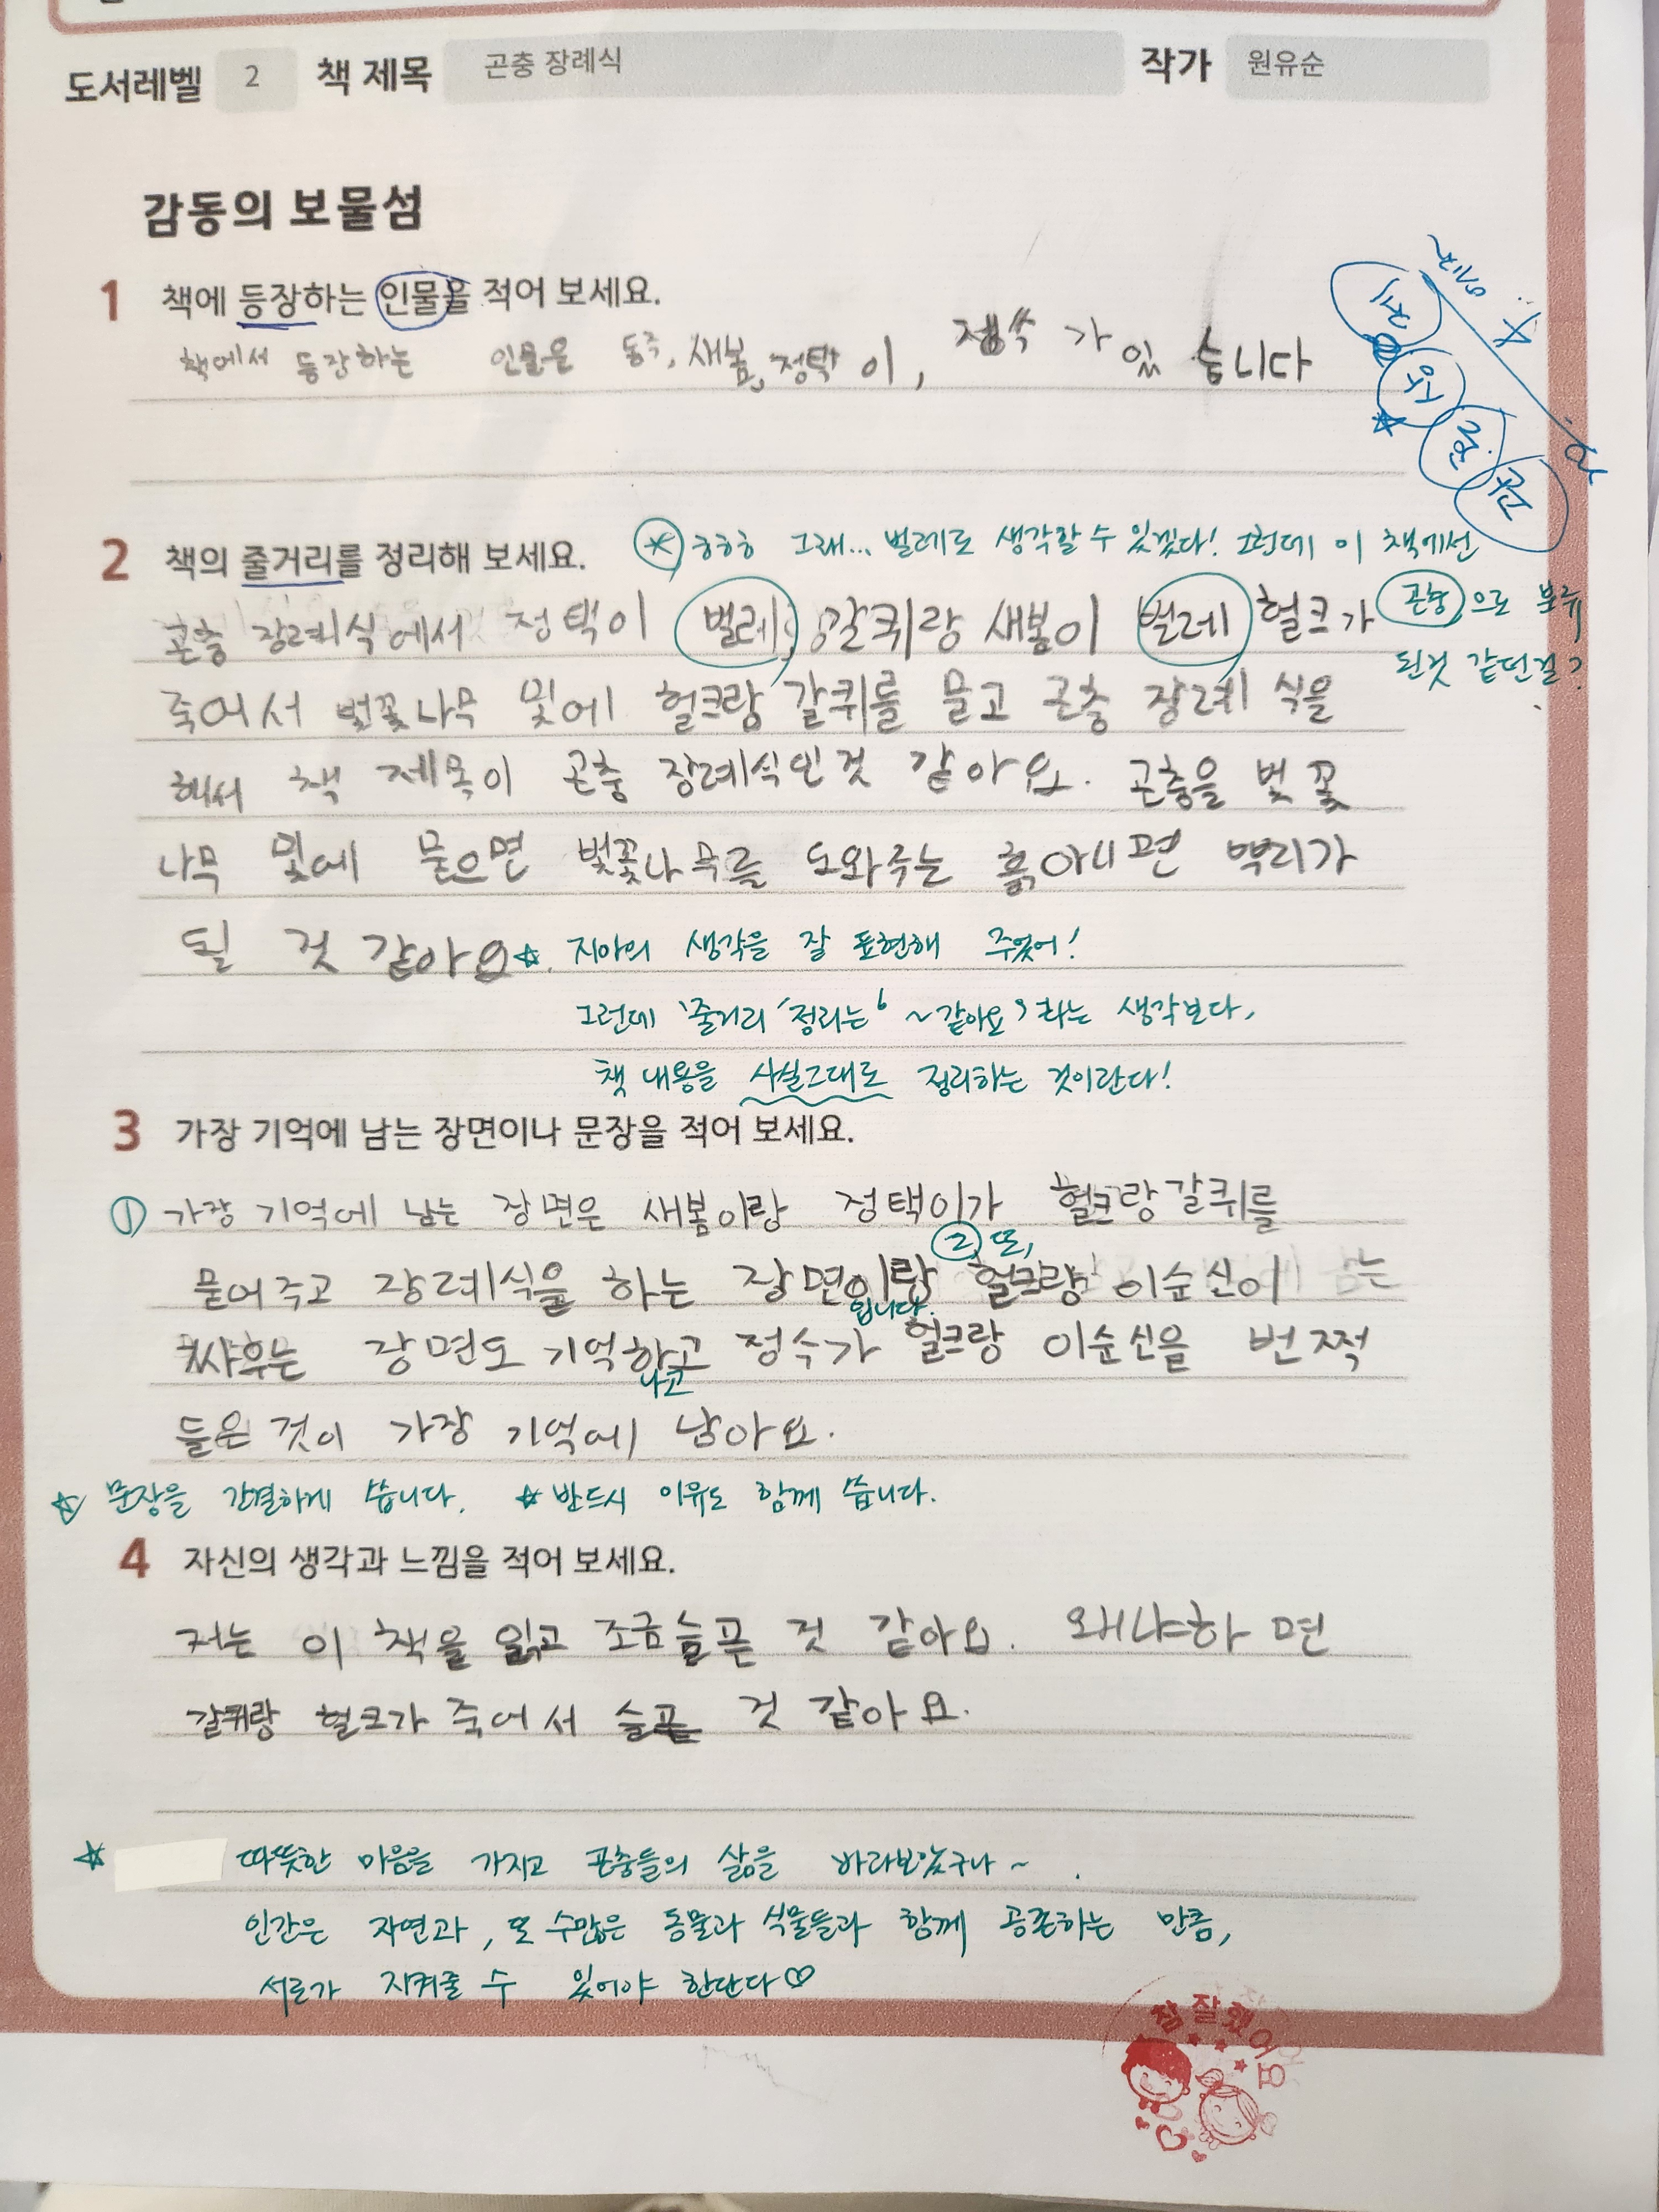 도서레벨 2 책 제목 곤충 장례식 작가 원유순
감동의 보물섬
1 책에 등장하는 인물을 적어 보세요.
책에서 등장하는 인물은 동주, 새봄, 정택이, 정수가 있습니다
2 책의 줄거리를 정리해 보세요.
㊀ ㅎㅎㅎ 그래... 벌레로 생각할 수 있겠다! 그런데 이 책에선
곤충으로 분류
된것 같던걸?
곤충 장례식에서 정택이 벌레 갈퀴랑 새봄이 벌레 헐크가
죽어서 벚꽃나무 밑에 헐크랑 갈퀴를 묻고 곤충 장례식을
해서 책 제목이 곤충 장례식인것 같아요. 곤충을 벚꽃
나무 밑에 묻으면 벚꽃나무를 도와주는 흙아니면 뿌리가
될 것 같아요
☆ 지아의 생각을 잘 표현해 주었어!
그런데 '줄거리 정리는' ~같아요, 라는 생각보다,
책 내용을 사실그대로 정리하는 것이란다!
3 가장 기억에 남는 장면이나 문장을 적어 보세요.
① 가장 기억에 남는 장면은 새봄이랑 정택이가 헐크랑갈퀴를
② 또,
묻어주고 장례식을 하는 장면이랑 헐크랑 이순신이
입니다.
싸우는 장면도 기억하고 정수가 헐크랑 이순신을 번쩍
나고
들은 것이 가장 기억에 남아요.
☆ 문장을 간결하게 씁니다. ☆ 반드시 이유도 함께 씁니다.
4 자신의 생각과 느낌을 적어 보세요.
저는 이 책을 읽고 조금슬픈 것 같아요. 왜냐하면
갈퀴랑 헐크가 죽어서 슬픈 것 같아요.
☆ 따뜻한 마음을 가지고 곤충들의 삶을 바라보았구나~.
인간은 자연과, 또 수많은 동물과 식물들과 함께 공존하는 만큼,
서로가 지켜줄 수 있어야 한단다♡
참 잘했어요